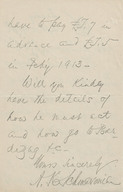 have to pay £T.7 in
advance and £T.5
in July 1913 -
Will you kindly
have the details of
how he must act
and how go to
Yours sincerely